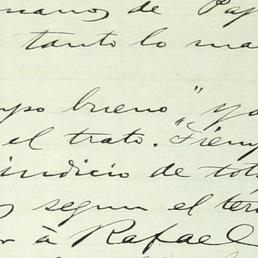 manos de Pap
tanto lo ma
po bueno" "ya
el trato. Tiemp
indicio de tot
segun el ter
à Rafael